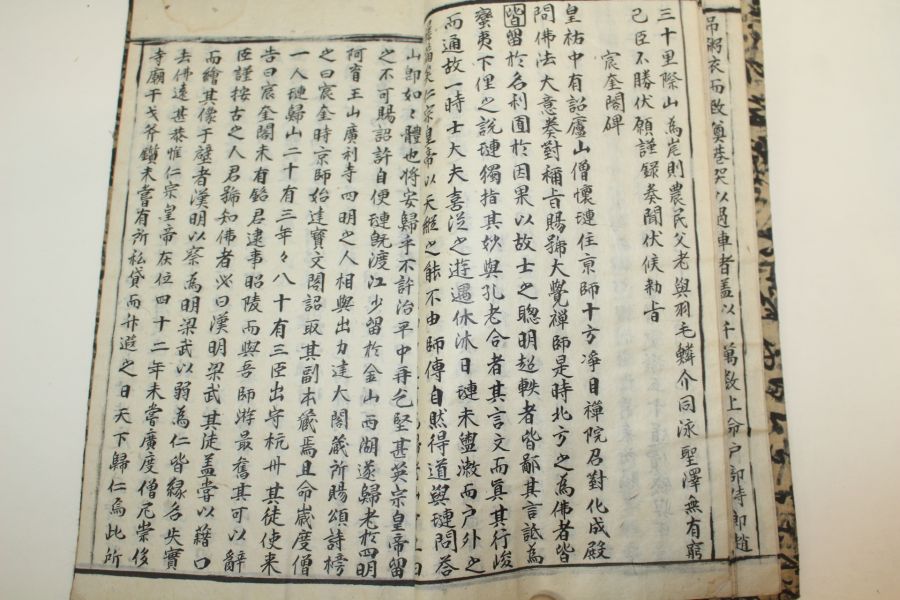 帛粥衣而致奠巷哭以過車者盖以千萬數上命戶部侍郎趙
三十里際山為岸則農民父老與羽毛鱗介同泳聖澤無有窮
己臣不勝伏願謹録奏聞伏候勅旨
宸奎閣碑
皇祐中有詔廬山僧懷璉住京師十方淨目禅院召對化成殿
問佛法大意奏對稱旨賜號大覺禅師是時北方之為佛者皆
皆留於名利囿於因果以故士之聰明超軼者皆鄙其言詆為
蠻夷下俚之說璉獨指其妙與孔老合者其言文而真其行峻
而通故一時士大夫喜從之遊遇休沐日璉未盥漱而戶外之
屨滿矣仁宗皇帝以天縱之能不由師傳自然得道與璉問答
山即如々體也將安歸乎不許治平中再乞堅甚英宗皇帝留
之不可賜詔許自便璉既渡江少留於金山西湖遂歸老於四明
阿育王山廣利寺四明之人相與出力建大閣藏所賜頌詩榜
之曰宸奎時京師始建寶文閣詔取其副本藏焉且命嵗度僧
一人璉歸山二十有三年々八十有三臣出守杭州其徒使来
告曰宸奎閣未有銘君逮事昭陵而與吾師游最舊其可以辭
臣謹按古之人君號知佛者必曰漢明梁武其徒盖嘗以藉口
而繪其像于壁者漢明以察為明梁武以弱為仁皆緣名失實
去佛遠甚恭惟仁宗皇帝在位四十二年未嘗廣度僧尼崇侈
寺廟干戈斧鑕未嘗有所私貸而升遐之日天下歸仁焉此所